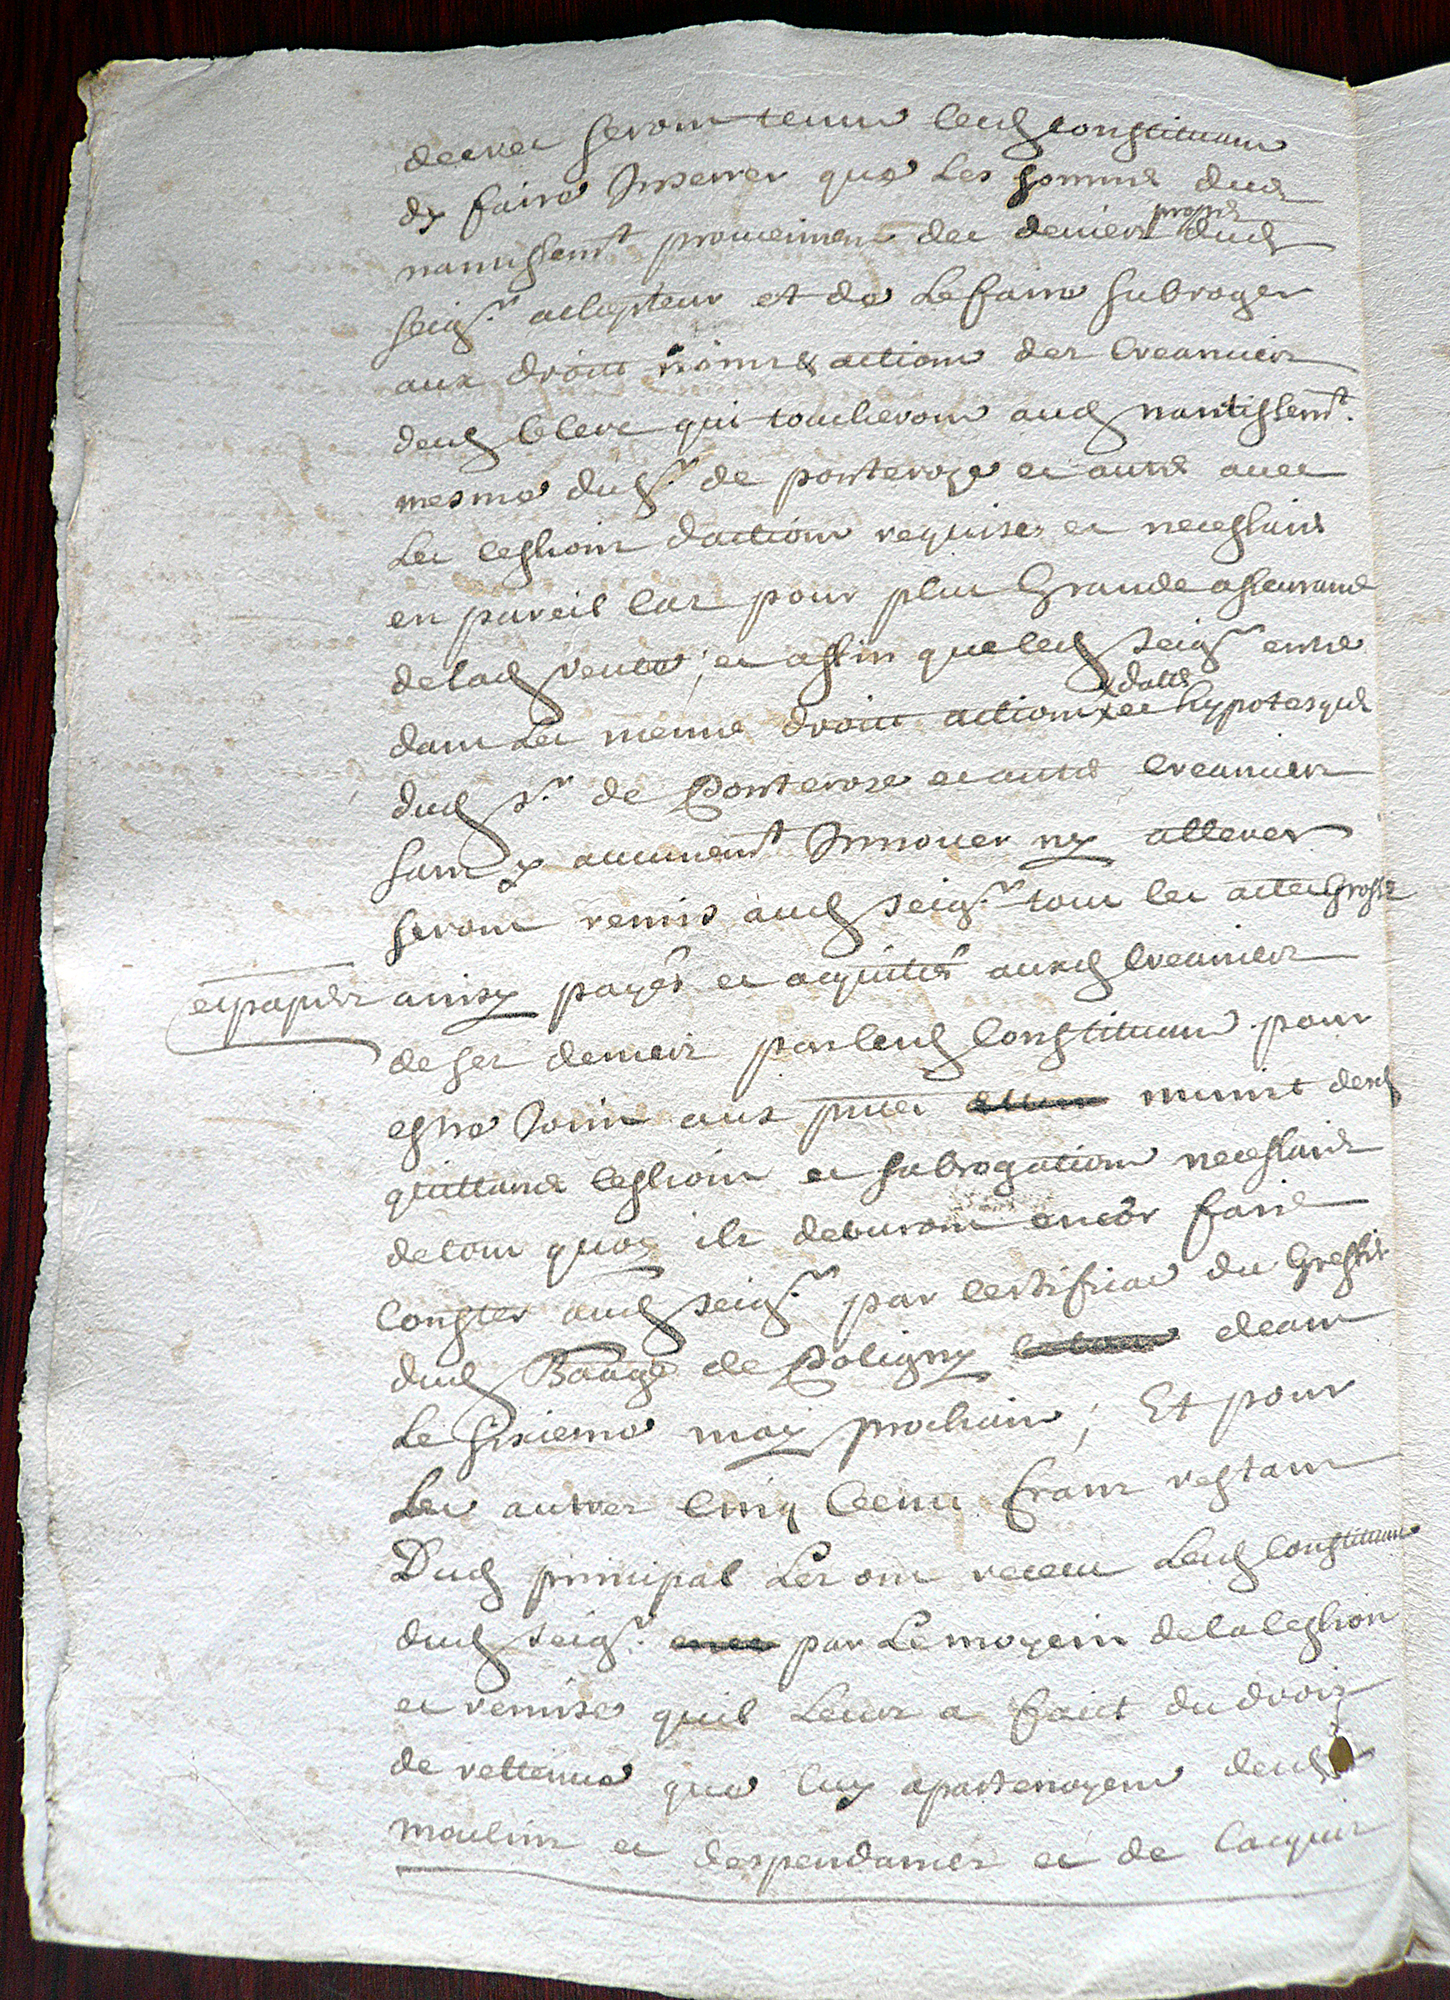 decret seront tenus lesd constituans
dy faire Inserrer que Les sommes dud
nantissemt prouiennent des deniers propres dud
seigr achepteur et de Le faire subroger
aux droits noms & actions des creanciers
dud Clerc qui toucheront aud nantissemt.
mesme dud sr de ponteroze et autres auec
Les cessions dactions requises et necessaires
en pareil cas pour plus Grande asseurance
de lad vente, et affin que led seigr entre
dans Les mesmes droits actions dattes et hypotesques
dud sr de Ponteroze et autres creanciers
sans y aucunemt Innouer ny alterer
seront remis aud seigr tous les actes Grosses
et papiers ainsy payés et acquittés auxd creanciers
de ses deniers par lesd constituans pour
estre Joins aux munis desd
quittances cessions et subrogations necessaires
de tout quoy ils deburont encor faire
conster aud seigr par certificat du Greffier
dud Baage de Poligny deans
Le sixieme may prochain; Et pour
Les autres cinq cents frans restans
Dud principal Les ont receu Lesd constituans
dud seigr par Le moyein de la cession
et remise quil Leurs a faict du droit
de rettenue que luy apartenoyent desd
moulins et despendances et de lacquis